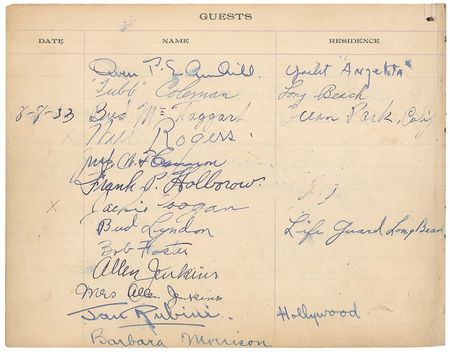 GUESTS
DATE NAME RESIDENCE
Owen P. Churchill. Yacht "Angelita"
"Tubb" Coleman Long Beach
8-8-33 Bud McTaggart Ocean Park, Calif
x Will Rogers
Mrs Cannon
Frank P. Holborow.
x Jackie Coogan
Bud Lyndon Life Guard Long Beach
Bob Foster
Allen Jenkins
Mrs Allen Jenkins
Jan Rubini. Hollywood
Barbara Morrison